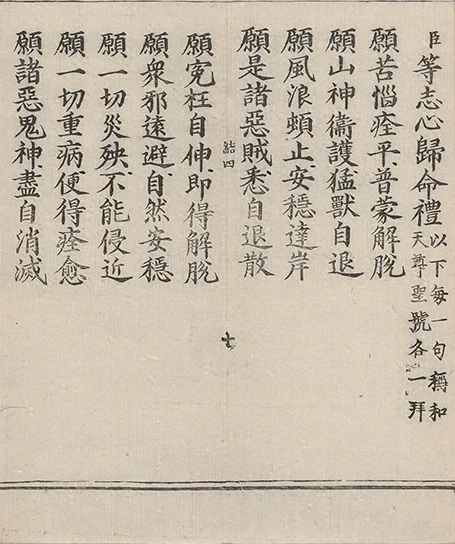 臣等志心歸命禮以下每一句稱和
天尊聖號各一拜
願苦惱痊平普蒙解脫
願山神衛護猛獸自退
願風浪頓止安穩達岸
願是諸惡賊悉自退散
結四
七
願冤枉自伸即得解脫
願衆邪遠避自然安穩
願一切災殃不能侵近
願一切重病便得痊愈
願諸惡鬼神盡自消滅